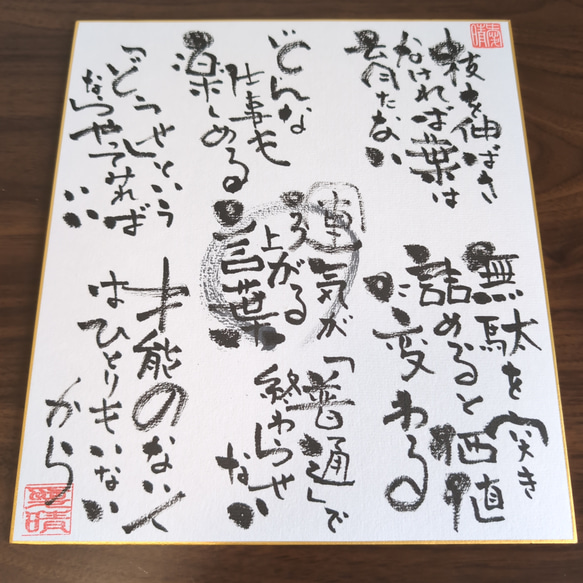 枝を伸ばさ
なければ葉は
育たない
無駄を突き
詰めると価値
に変わる
運気が
上がる
言葉
どんな
仕事も
楽しめる
「普通」で
終わらせ
ない
「どうせ」という
ならやってみれば
いい
才能のない人
はひとりもいない
から